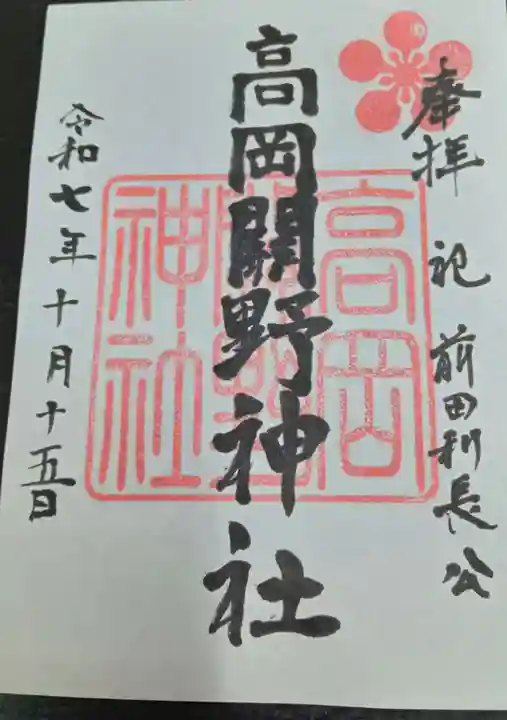 奉拝 祀 前田利長公
高岡關野神社
令和七年十月十五日
高岡
關野
神社